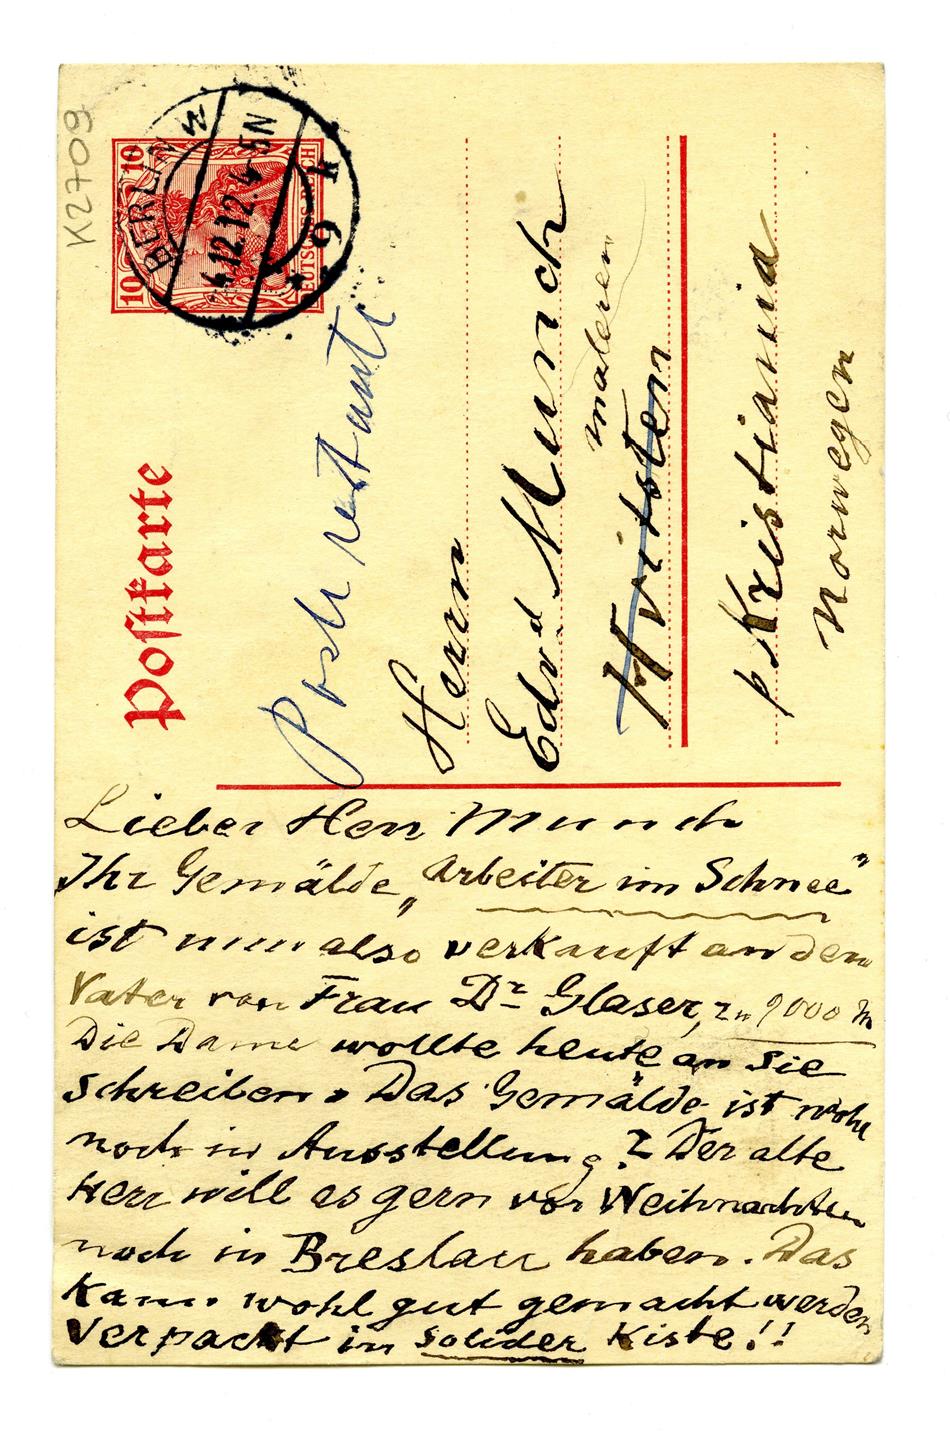 K2709
10 10
DEUTSCHES REICH
BERLIN W
4.12.12.4-5N
* 9 k
Postkarte
Post restante
Herrn
Edvd Munch
maleren
Hvitsten
p Kristiania
Norwegen
Lieber Herr Munch
Ihr Gemälde „Arbeiter im Schnee"
ist nun also verkauft an den
Vater von Frau Dr Glaser, zu 9000 M
Die Dame wollte heute an Sie
schreiben. Das Gemälde ist wohl
noch in Ausstellung? Der alte
Herr will es gern vor Weihnachten
noch in Breslau haben. Das
kann wohl gut gemacht werden
Verpackt in solider Kiste!!